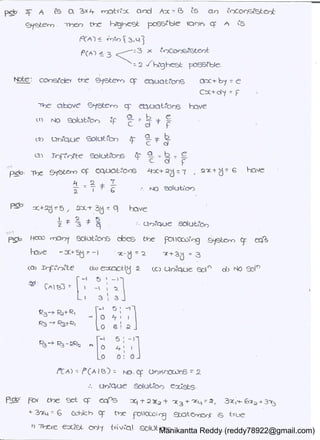 pgb: If A is a 3x4 matrix and Ax = B is an inconsistent
system. Then the highest possible rank of A is
P(A) ≤ min{3,4}
P(A) ≤ 3 3 x inconsistent
= 2 ✓ highest possible.
Note: consider the system of equations ax + by = e
cx + dy = f
The above system of equations have
(1) No solution if a/c = b/d ≠ e/f
(2) unique solution if a/c ≠ b/d
(3) Infinite solutions if a/c = b/d = e/f
pgb: The system of equations 4x + 2y = 7, 2x + y = 6 have
4/2 = 2/1 ≠ 7/6 ∴ No solution
pgb x + 2y = 5, 2x + 3y = 9 have
1/2 ≠ 2/3 ≠ 5/9 ∴ unique solution
pgb: How many solutions does the following system of eqns
have -x + 5y = -1 x - y = 2 x + 3y = 3
(a) Infinite (b) exactly 2 (c) Unique soln d) No soln
[A|B] = [-1 5 | -1
1 -1 | 2
1 3 | 3]
R2 → R2 + R1
R3 → R3 + R1
~ [-1 5 | -1
0 4 | 1
0 8 | 2]
R3 → R3 - 2R2 ~ [-1 5 | -1
0 4 | 1
0 0 | 0]
P(A) = P(A|B) = No. of unknowns = 2
∴ unique solution exists
pgb for the set of eqns x1 + 2x2 + x3 + x4 = 2, 3x1 + 6x2 + 3x3
+ 3x4 = 6 which of the following statement is true
1) There exist only trivial
Manikantta Reddy (reddy78922@gmail.com)